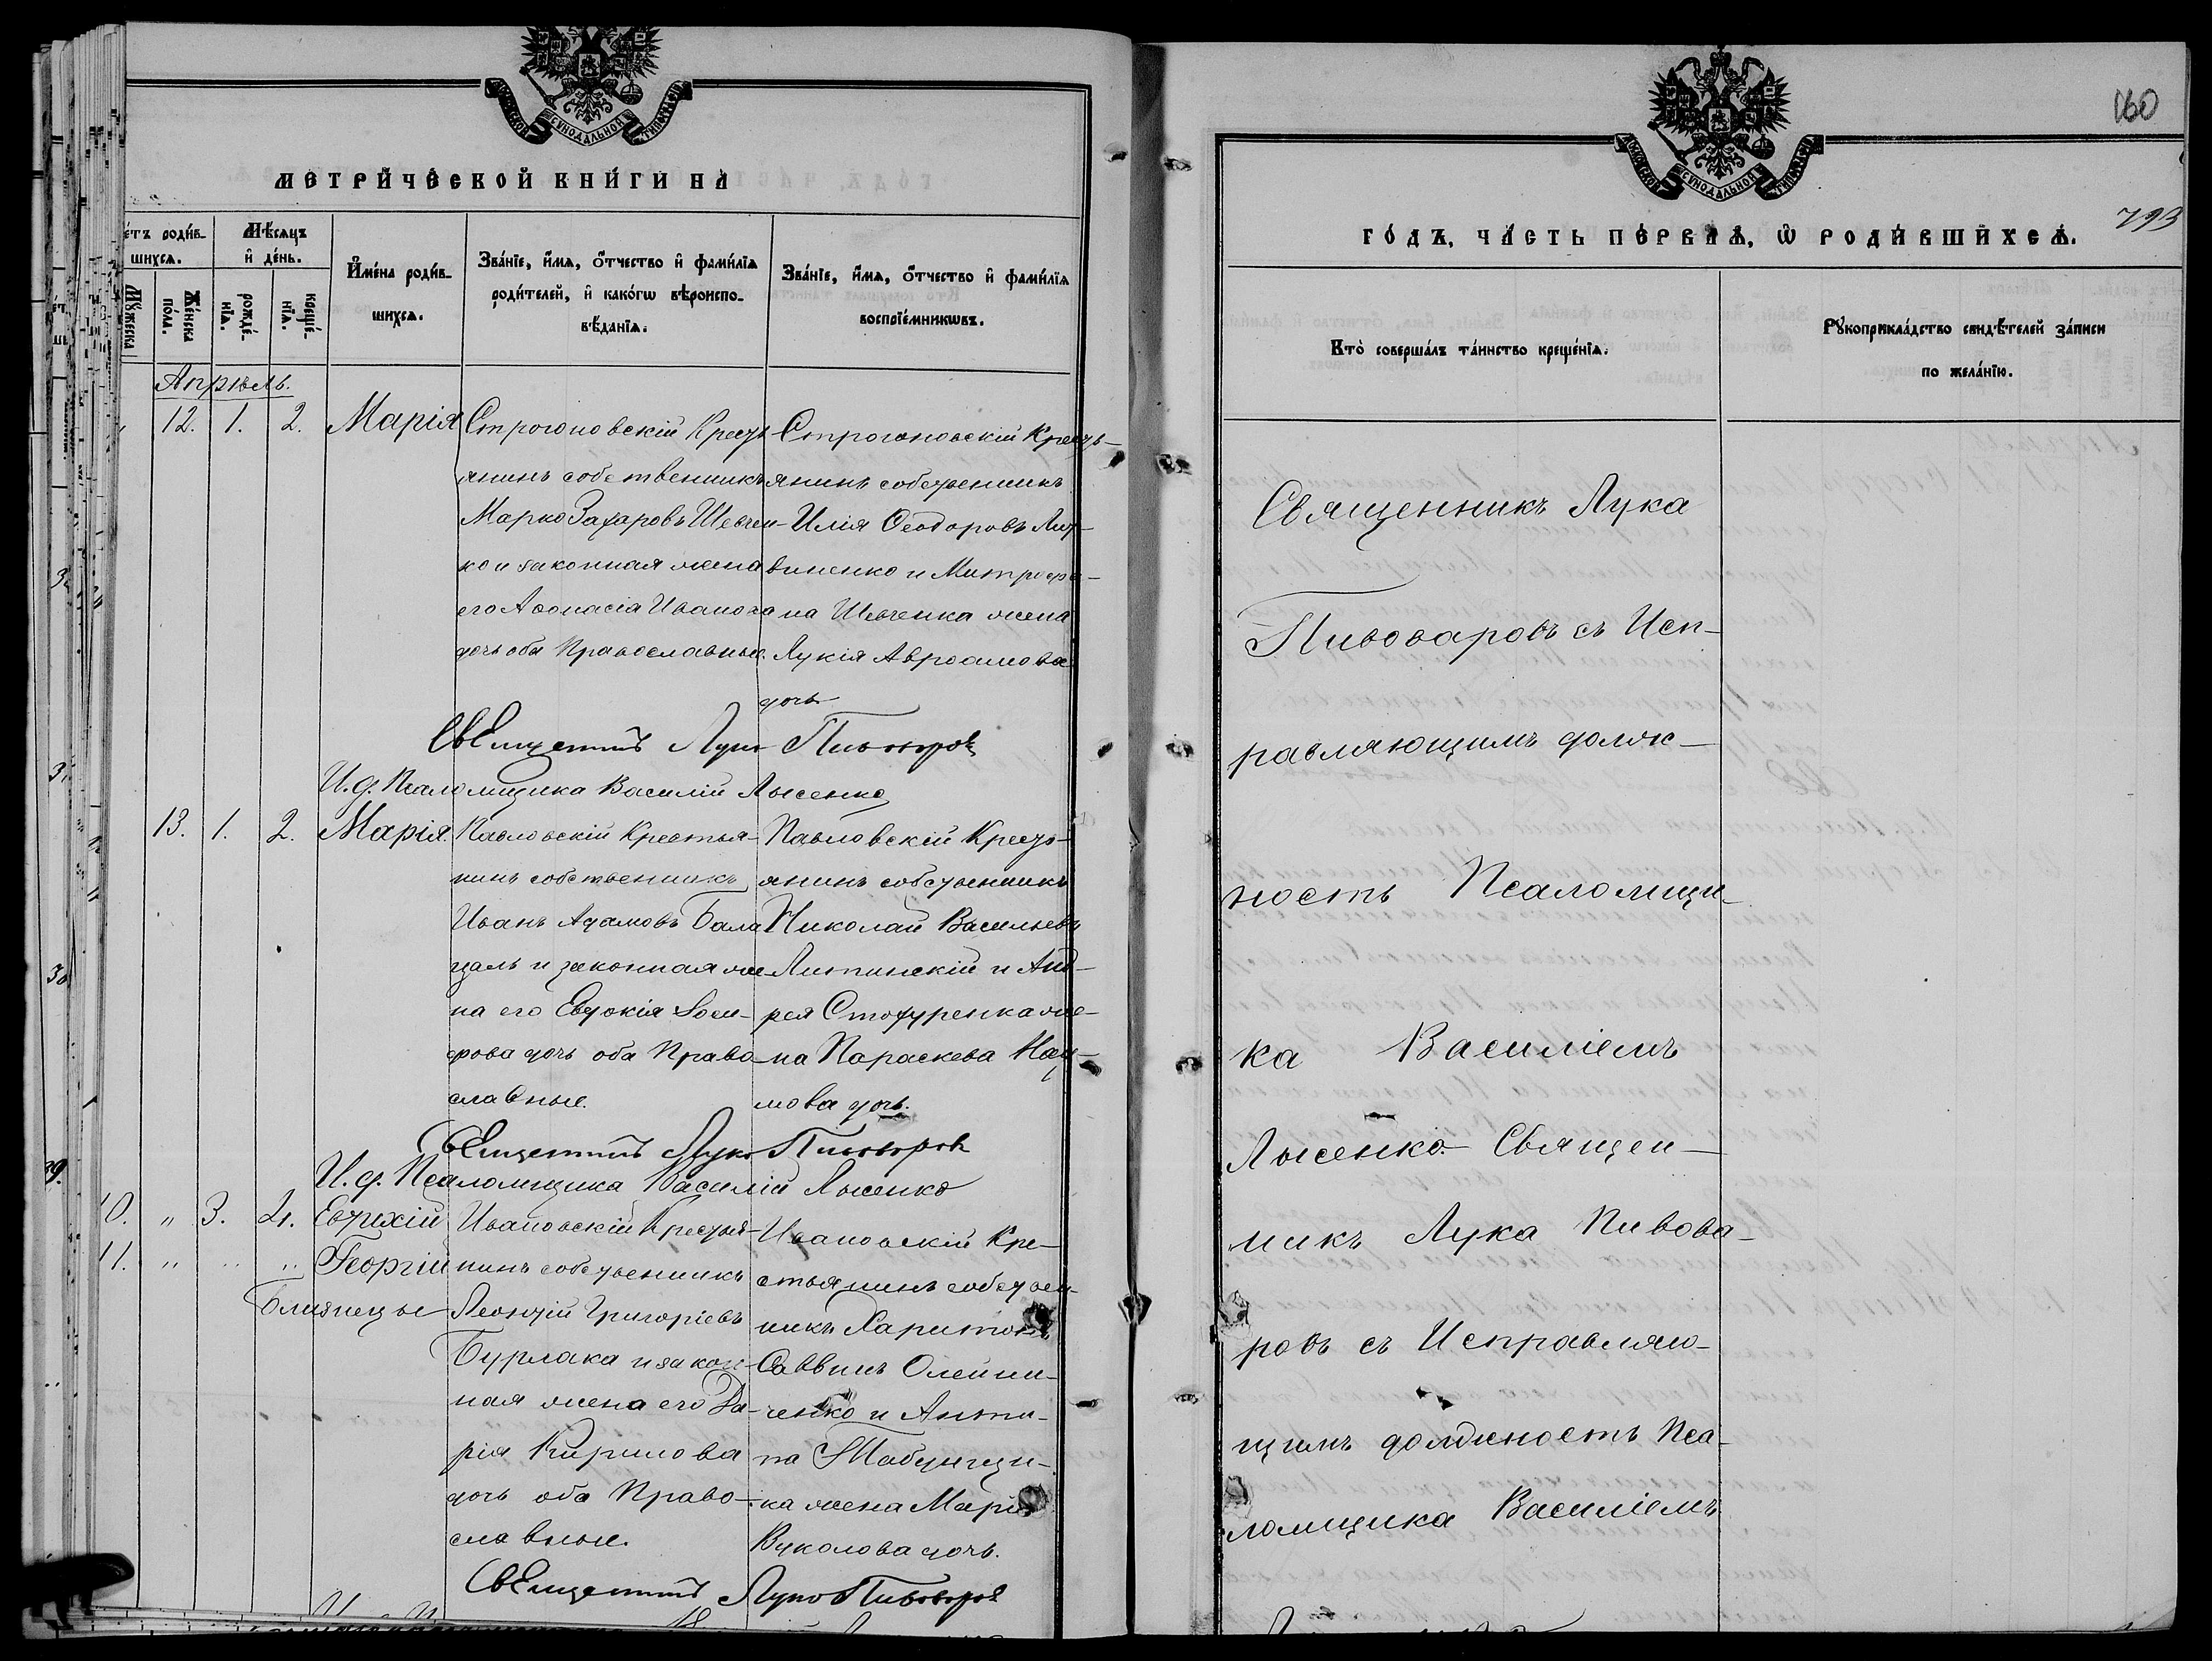 МЕТРИЧЕСКОЙ КНИГИ НА
етъ родив-
шихся.
Мѣсяцъ
и день.
Имена родив-
шихся.
Званіе, имя, отчество и фамилія
родителей, и какогѡ вѣроиспо-
вѣданія.
Званіе, имя, отчество и фамилія
воспріемникѡвъ.
Мужеска
Женска
пола.
рожде-
нія.
креще-
нія.
Апрѣль.
12. 1. 2. Марія
Строгоновскій Кресть-
янинъ собственникъ
Марко Захаровъ Шевчен-
ко и законная жена
его Афонасія Иванова
дочь оба Православные.
Строгоновскій Кресть-
янинъ собственникъ
Илія Ѳеодоровъ Лит-
виненко и Митрофа-
на Шевченка жена
Лукія Авраамова
дочь
Священникъ Лука Пивоваровъ
И.д. Псаломщика Василій Лысенко
13. 1. 2. Марія.
Павловскій Крестья-
нинъ собственникъ
Иванъ Адамовъ Бала
цаль и законная же
на его Евдокія Іоси-
фова дочь оба Право-
славные.
Павловскій Кресть-
янинъ собственникъ
Николай Васильевъ
Литинскій и Анд-
рея Стофуренка же-
на Параскева Нау-
мова дочь.
Священникъ Лука Пивоваровъ
И.д. Псаломщика Василій Лысенко
10. " 3. 4. Евтихій
11. " " " Георгій
Близнецы
Ивановскій Крестья-
нинъ собственникъ
Леонтій Григоріевъ
Бурлака и закон-
ная жена его Да-
рія Кирилова
дочь оба Право-
славные.
Ивановскій Кре-
стьянинъ собствен-
никъ Харитонъ
Саввинъ Олейни-
ченко и Анти-
па Табунщи-
ка жена Марія
Вуколова дочь.
Священникъ Лука Пивоваровъ
160
793
ГОДЪ, ЧАСТЬ ПЕРВАЯ, Ѡ РОДИВШИХСЯ.
Кто совершалъ таинство крещенія.
Рукоприкладство свидѣтелей записи
по желанію.
Священникъ Лука
Пивоваровъ съ Исп-
равляющимъ долж-
ность Псаломщи-
ка Василіемъ
Лысенко. Священ-
никъ Лука Пивова-
ровъ съ Исправляю-
щимъ должность Пса-
ломщика Василіемъ